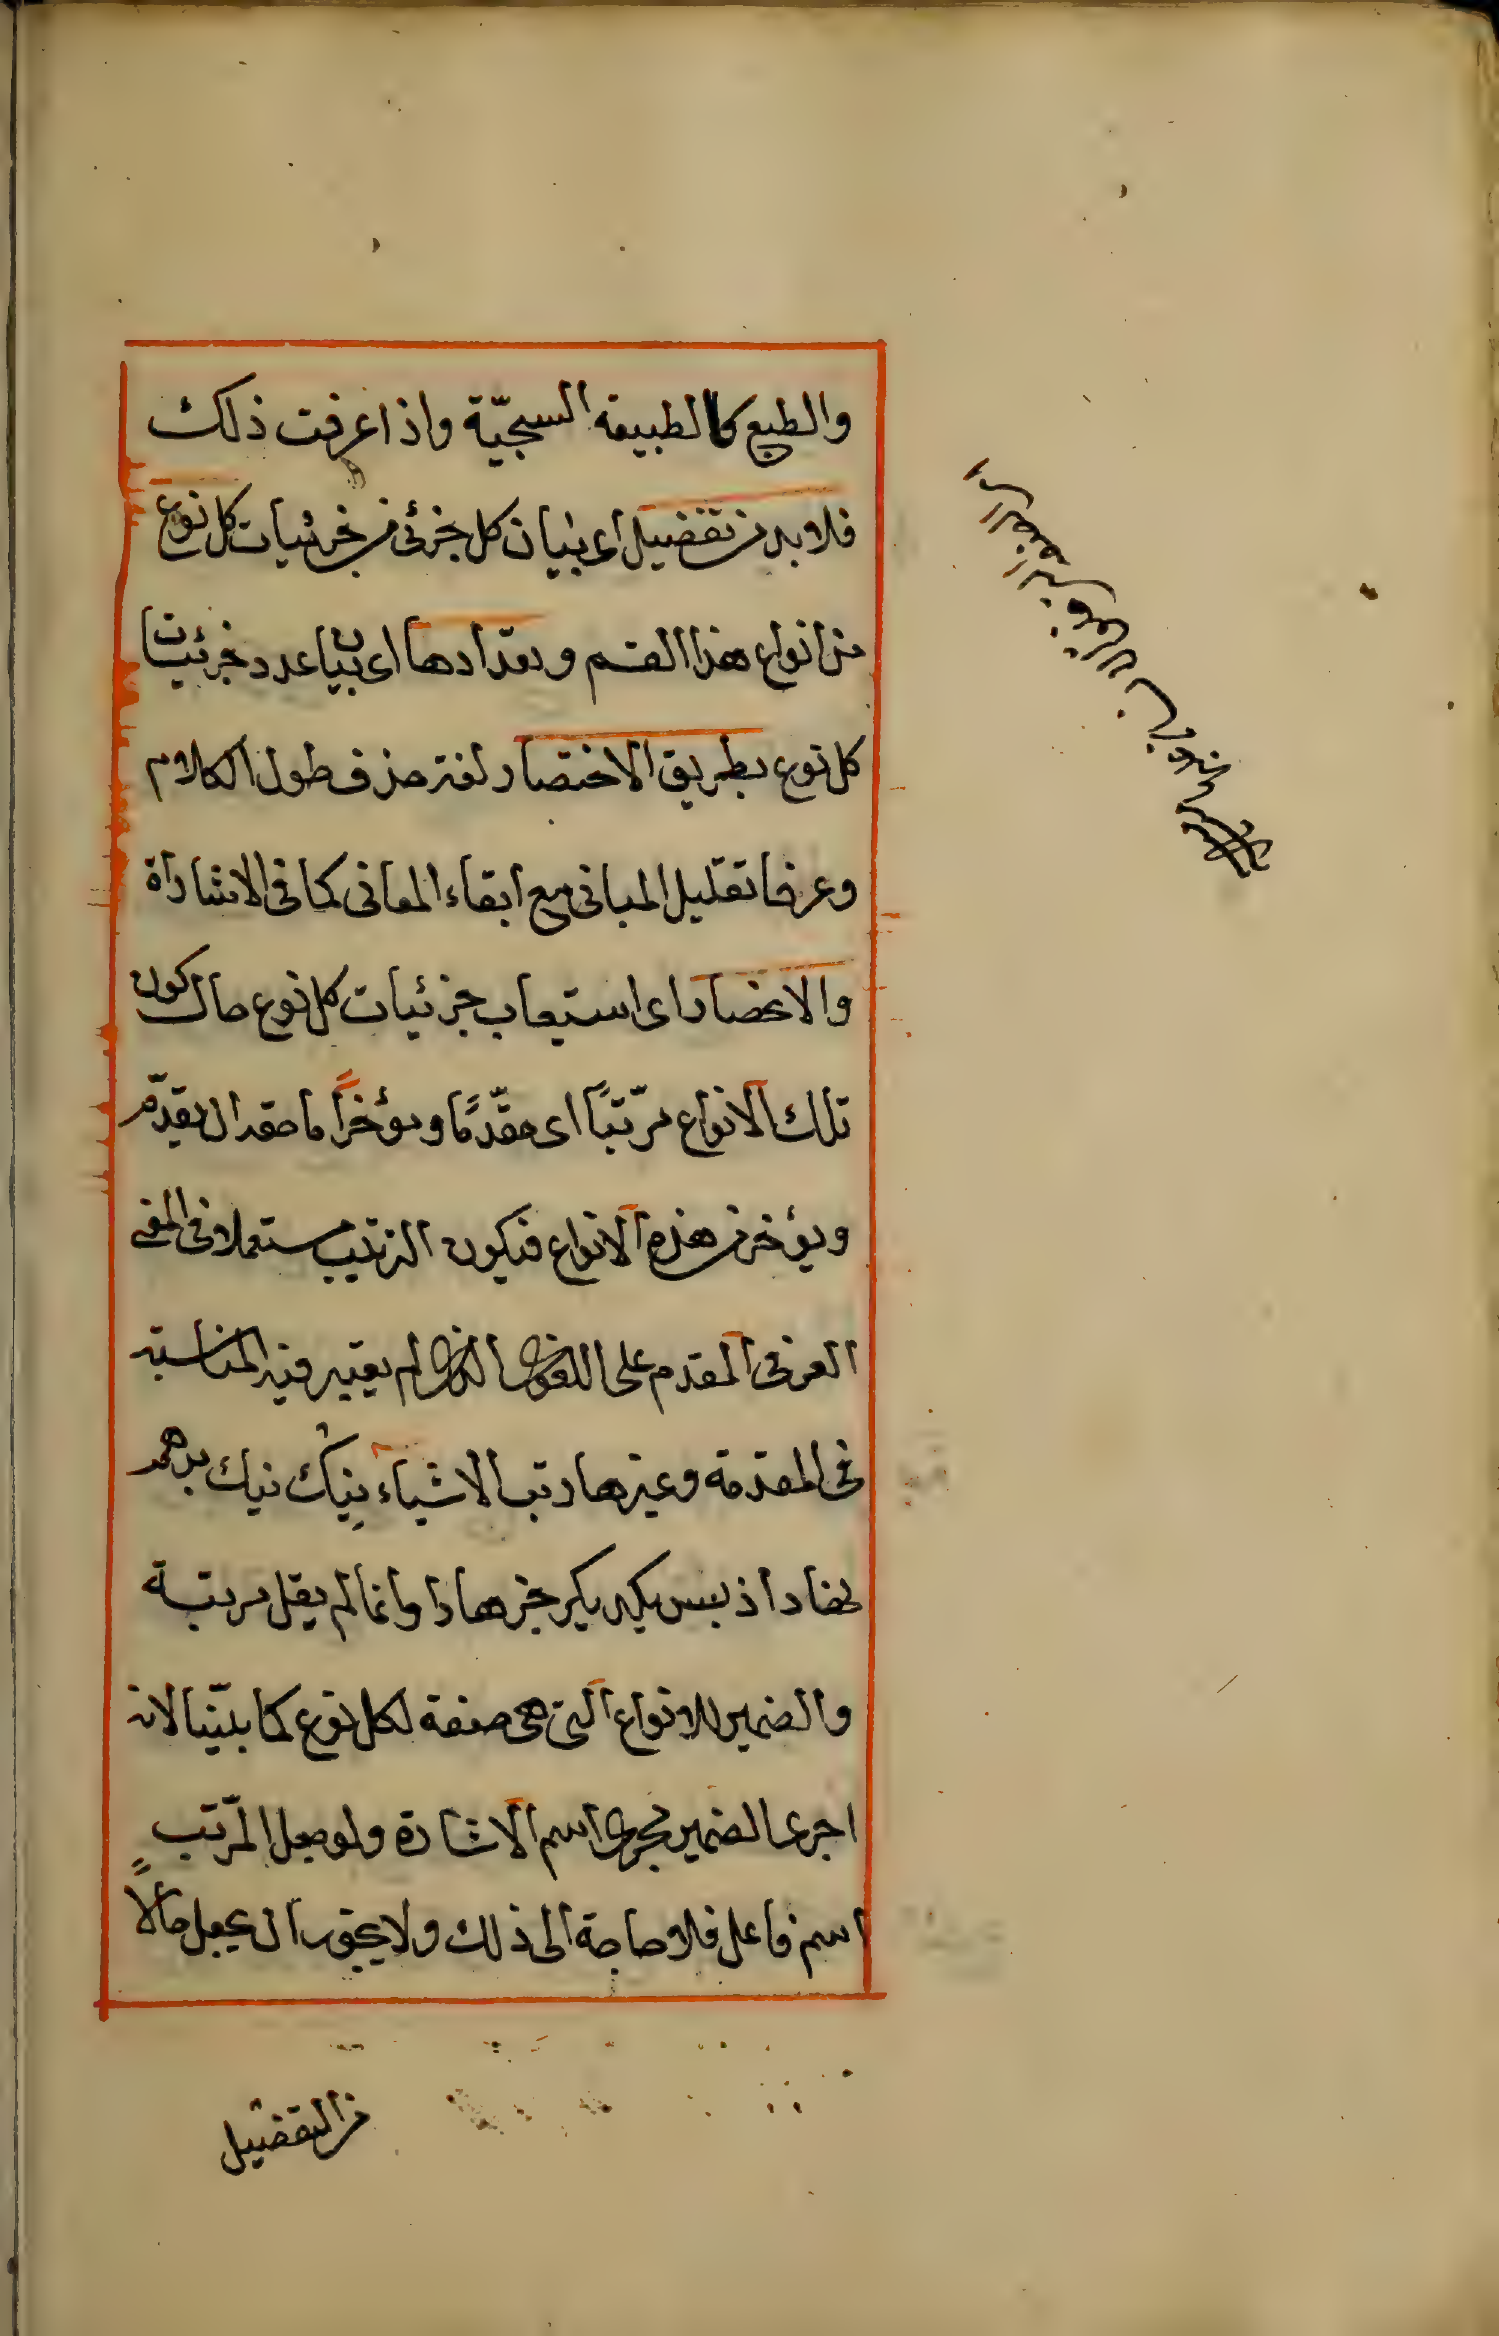 والطبع كالطبيعة السجيّة واذا عرفت ذلك
فلا بد من تفضيل اى بيان كل جزئى من جزئيات كل نوع
من انواع هذا القسم وتعدادها اى بيان عدد جزئيات
كل نوع بطريق الاختصار لغة حذف طول الكلام
وعرفا تقليل المبانى مع ابقاء المعانى كما فى الاشاراة
والانحصار اى استيعاب جزئيات كل نوع حال كون
تلك الانواع مرتّبًا اى مقدّمًا ومؤخرًا ما حقه ان يقدّم
ويؤخر من هذه الانواع فيكون الترتيب مستعملا فى المعنى
العرفى المقدم على اللغوى الذى لم يعتبر فيه المناسبة
فى المقدمة وغيرها رتب الاشياء
وانما لم يقل مرتبة
والضمير للانواع التى هى صفة لكل نوع كما بيّنا لانه
اجرى الضمير مجرى اسم الاشارة ولو جعل المرتب
اسم فاعل فلا حاجة الى ذلك ولا يجوز ان يجعل حالًا
من التفضيل